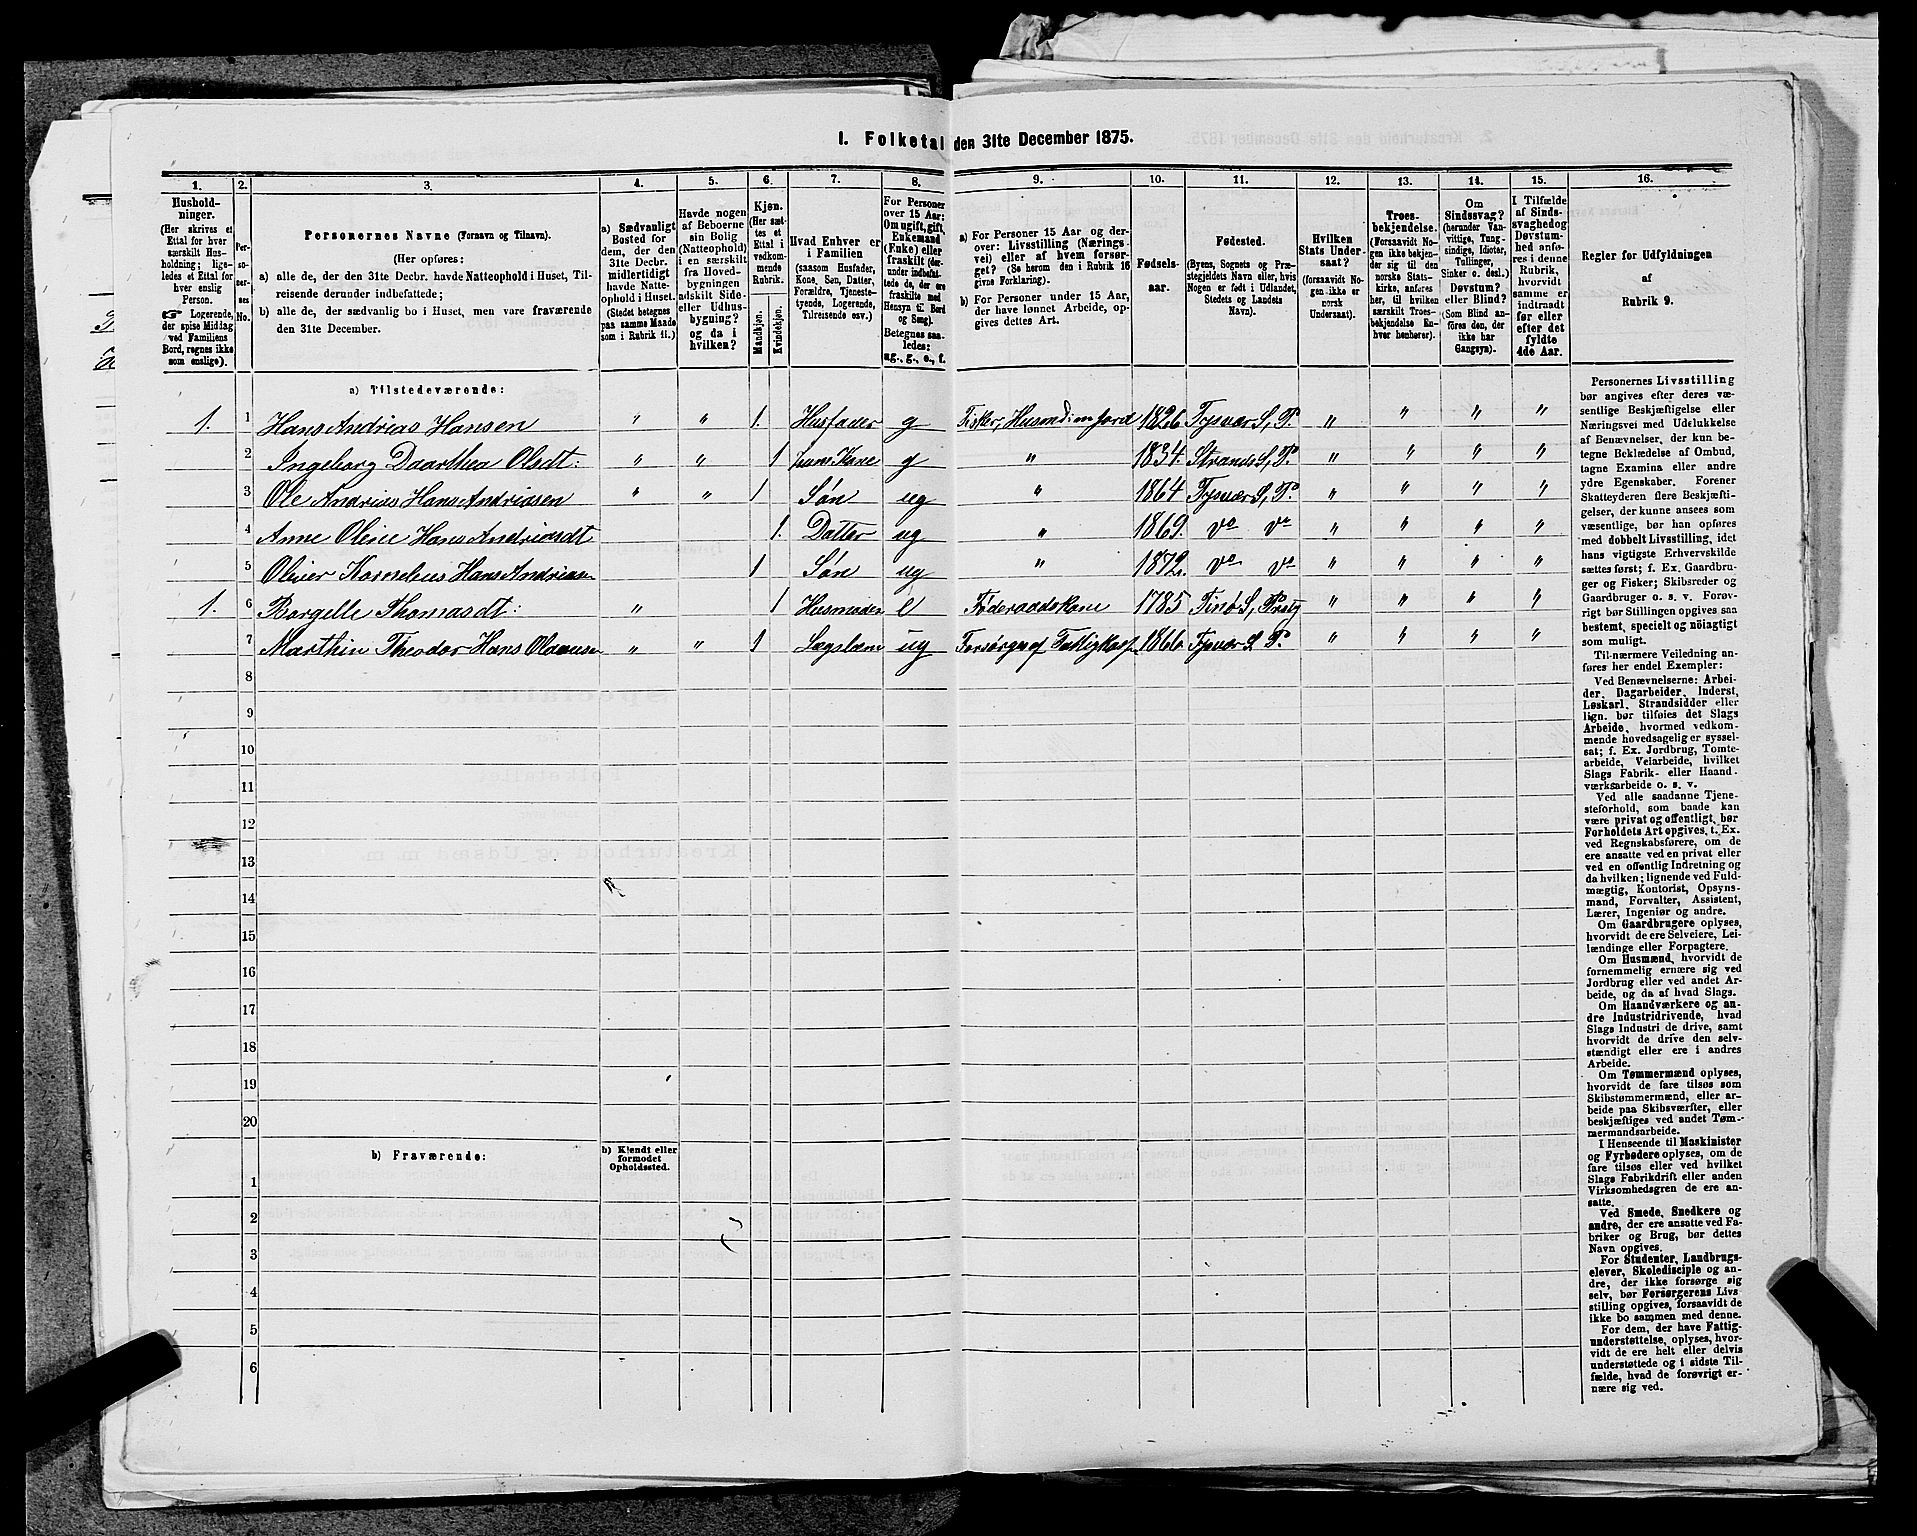 I. Folketal den 31te December 1875.
1. 2. 3. 4. 5. 6. 7. 8. 9. 10. 11. 12. 13. 14. 15. 16.
Husholdninger.
(Her skrives et
Ettal for hver
særskilt Husholdning; ligeledes et Ettal for
hver enslig
Person.
Logerende,
der spise Middag
ved Familiens
Bord, regnes ikke
som enslige).
Personernes No.
Personernes Navne (Fornavn og Tilnavn).
(Her opføres:
a) alle de, der den 31te Decbr. havde Natteophold i Huset, Tilreisende derunder indbefattede;
b) alle de, der sædvanlig bo i Huset, men vare fraværende
den 31te December.
a) Sædvanligt
Bosted for
dem, der den
31te Decbr.
midlertidigt
havde Natteophold i Huset.
(Stedet betegnes
paa samme Maade
som i Rubrik 11.)
Havde nogen
af Beboerne
sin Bolig
(Natteophold)
i en særskilt
fra Hovedbygningen
adskilt Side-
eller Udhusbygning?
og da i
hvilken?
Kjøn.
(Her sættes et
Ettal i
vedkommende
Rubrik.
Mandkjøn.
Kvindekjøn.
Hvad Enhver er
i Familien
(saasom Husfader,
Kone, Søn, Datter,
Forældre, Tjenestetyende, Logerende,
Tilreisende osv.)
For Personer
over 15 Aar:
Om ugift, gift,
Enkemand
(Enke) eller
fraskilt (derunder indbefattede de, der ere
fraskilte med
Hensyn til Bord
og Seng).
Betegnes saaledes:
ug., g., e., f.
a) For Personer 15 Aar og derover: Livsstilling (Næringsvei) eller af hvem forsørget? (Se herom den i Rubrik 16
givne Forklaring).
b) For Personer under 15 Aar,
der have lønnet Arbeide, opgives dettes Art.
Fødselsaar.
Fødested.
(Byens, Sognets og Præstegjeldets Navn eller, hvis
Nogen er født i Udlandet,
Stedets og Landets
Navn).
Hvilken
Stats Undersaat?
(forsaavidt Nogen ikke er
norsk
Undersaat).
Troesbekjendelse.
(Forsaavidt Nogen ikke bekjender sig til den
norske Statskirke, anføres
her, til hvilken
særskilt Troesbekjendelse Enhver henhører).
Om
Sindssvag?
(herunder Vanvittige, Tungsindige, Idioter,
Tullinger,
Sinker o. desl.)
Døvstum?
eller Blind?
(Som Blind anføres den, der
ikke har
Gangsyn).
I Tilfælde
af Sindssvaghed og
Døvstumhed anføres i denne
Rubrik,
hvorvidt
samme er
indtraadt
før eller
efter det
fyldte
4de Aar.
Regler for Udfyldningen
af
Rubrik 9.
a) Tilstedeværende:
1. 1 Hans Andrias Hansen " " 1. Husfader g Fisker, Husmd: m jord 1826 Tysvær S, P. " " " "
2 Ingeborg Daarthea Olsdt: " " 1 hans Kone g " 1834. Strands S, P. " " " "
3 Ole Andrias Hans Andriasen " " 1 Søn ug " 1864 Tysvær S, P. " " " "
4 Anne Oline Hans Andriasdt 1. Datter ug " 1869. do do " " " "
5 Olivier Kornelius Hans Andrias 1 Søn ug " 1872. do do " " " "
1. 6 Borgelle Thomasdt: " 1 Husmoder e Føderaadskone 1785 S, " " " "
7 Marthin Theodor Hans " " 1 Lægslem ug Forsørges af 1866 Tysvær S. P. " " " "
8
9
10
11
12
13
14
15
16
17
18
19
20
b) Fraværende:
b) Kjendt eller
formodet
Opholdssted.
1
2
3
4
5
6
Personernes Livsstilling
bør angives efter deres væsentlige Beskjæftigelse eller
Næringsvei med Udelukkelse
af Benævnelser, der kun betegne Beklædelse af Ombud,
tagne Examina eller andre
ydre Egenskaber. Forener
Skatteyderen flere Beskjæftigelser, der kunne ansees som
væsentlige, bør han opføres
med dobbelt Livsstilling, idet
hans vigtigste Erhvervskilde
sættes først; f. Ex. Gaardbruger og Fisker; Skibsreder og
Gaardbruger o. s. v. Forøvrigt bør Stillingen opgives saa
bestemt, specielt og nøiagtigt
som muligt.
Til nærmere Veiledning anføres her endel Exempler:
Ved Benævnelserne: Arbeider, Dagarbeider, Inderst,
Løskarl, Strandsidder eller
lign. bør tilføies det Slags
Arbeide, hvormed vedkommende hovedsagelig er sysselsat; f. Ex. Jordbrug, Tomtearbeide, Veiarbeide, hvilket
Slags Fabrik- eller Haandværksarbeide o. s. v.
Ved alle saadanne Tjenesteforhold, som baade kan
være privat og offentligt, bør
Forholdets Art opgives, t. Ex.
ved Regnskabsførere, om de
ere ansatte ved en privat eller
ved en offentlig Indretning og
da hvilken; lignende ved Fuldmægtig, Kontorist, Opsynsmand, Forvalter, Assistent,
Lærer, Ingeniør og andre.
Om Gaardbrugere oplyses,
hvorvidt de ere Selveiere, Leilændinge eller Forpagtere.
Om Husmænd, hvorvidt de
fornemmelig ernære sig ved
Jordbrug eller ved andet Arbeide, og da af hvad Slags.
Om Haandværkere og andre Industridrivende, hvad
Slags Industri de drive, samt
hvorvidt de drive den selvstændigt eller ere i andres
Arbeide.
Om Tømmermænd oplyses,
hvorvidt de fare tilsøs som
Skibstømmermænd, eller arbeide paa Skibsværfter, eller
beskjæftiges ved andet Tømmermandsarbeide.
I Henseende til Maskinister
og Fyrbødere oplyses, om de
fare tilsøs eller ved hvilket
Slags Fabrikdrift eller anden
Virksomhedsgren de ere ansatte.
Ved Smede, Snedkere og
andre, der ere ansatte ved Fabriker og Brug, bør dettes
Navn opgives.
For Studenter, Landbrugselever, Skoledisciple og andre, der ikke forsørge sig
selv, bør Forsørgerens Livsstilling opgives, forsaavidt de
ikke bo sammen med denne.
For dem, der have Fattigunderstøttelse, oplyses, hvorvidt de ere helt eller delvis
understøttede og i sidste Tilfælde, hvad de forøvrigt ernære sig ved.